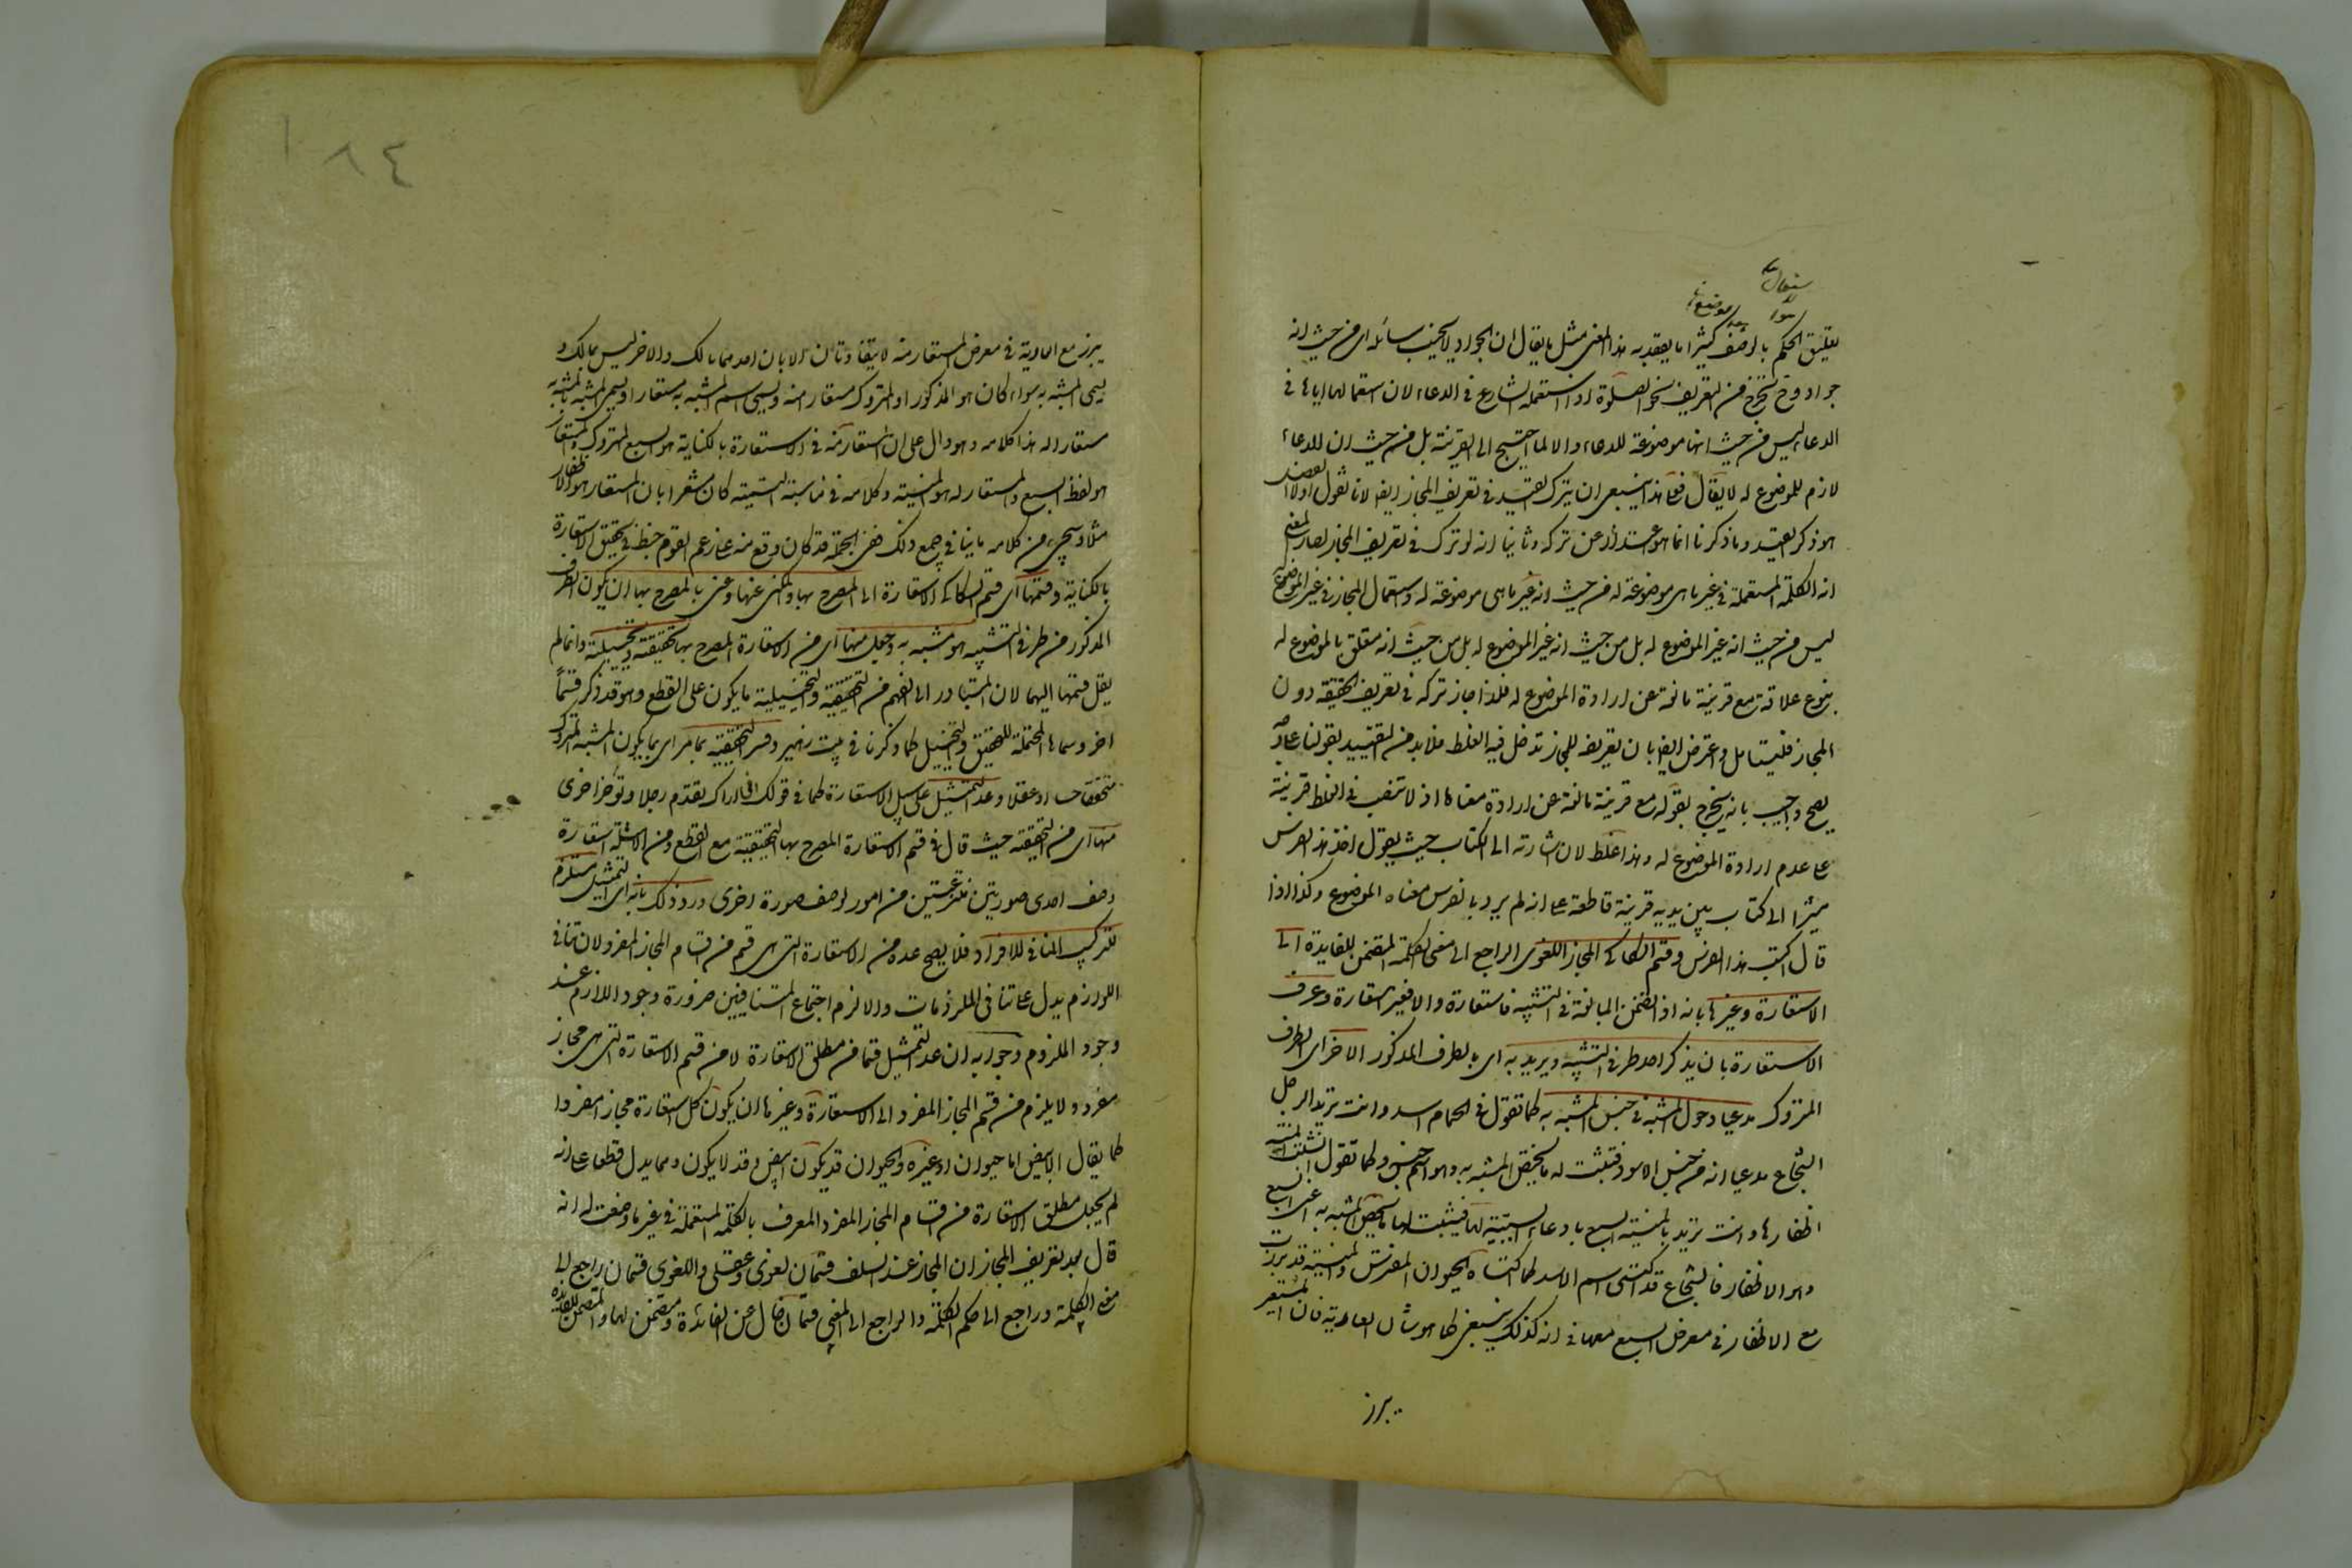 تعليق الحكم بالوصف كثيرا ما يقصد به هذا المعنى مثل ما يقال ان الجواد لا يخيب سائله اى من حيث انه
جواد وح تخرج من التعريف نحو الصلوة اذا استعمله الشارع فى الدعاء لان استعمالها اياها فى
الدعاء ليس من حيث انها موضوعة للدعاء والا لما احتيج الى القرينة بل من حيث ان الدعاء
لازم للموضوع له لا يقال فعلى هذا ينبغى ان يترك القيد فى تعريف المجاز ايضا لانا نقول اولا الاصل
هو ذكر القيد وما ذكرنا انما هو اعتذار عن تركه وثانيا انه لو ترك فى تعريف المجاز لصار المعنى
انه الكلمة المستعملة فى غير ما هى موضوعة له من حيث انه غير ما هى موضوعة له واستعمال المجاز فى غير الموضوع له
ليس من حيث انه غير الموضوع له بل من حيث انه غير الموضوع له بل من حيث انه متعلق بالموضوع له
بنوع علاقة مع قرينة مانعة عن ارادة الموضوع له فلذا جاز تركه فى تعريف الحقيقة دون
المجاز فليتامل واعترض ايضا بان تعريفه للمجاز تدخل فيه الغلط فلا بد من التقييد بقولنا على وجه
يصح واجيب بانه يخرج بقوله مع قرينة مانعة عن ارادة معناها اذ لا تنصب فى الغلط قرينة
على عدم ارادة الموضوع له وهذا غلط لان اشارته الى الكتاب حيث يقول خذ هذا الفرس
مشيرا الى كتاب بين يديه قرينة قاطعة على انه لم يرد بالفرس معناه الموضوع وكذا اذا
قال اكتب هذا الفرس وقسم السكاكى المجاز اللغوى الراجع الى معنى الكلمة المتضمن للفايدة الى
الاستعارة وغيرها بانه اذ تضمن المبالغة فى التشبيه فاستعارة والا فغير استعارة وعرف
الاستعارة بان يذكر احد طرفى التشبيه ويريد به اى بالطرف المذكور الاخر اى الطرف
المتروك مدعيا دخول المشبه فى جنس المشبه به كما تقول فى الحمام اسد وانت تريد الرجل
الشجاع مدعيا انه من جنس الاسود فتثبت له ما يخص المشبه به وهو اسم جنس وكما تقول انشبت المنية
اظفارها وانت تريد بالمنية السبع بادعاء السبعية لها فيثبت لها ما يخص المشبه به اعنى السبع
وهو الاظفار فالشجاع قد اكتسى اسم الاسد كما اكتساه الحيوان المفترس والمنية قد برزت
مع الاظفار فى معرض السبع معها فى انه كذلك ينبغى كما هو شان العارية فان المستعير
يبرز
يبرز مع العارية فى معرض المستعار منه لا يتفاوتان الا بان احدهما مالك والاخر ليس بمالك و
يسمى المشبه به سواء كان هو المذكور او المتروك مستعارا منه ويسمى اسم المشبه به مستعارا ويسمى المشبه بالمشبه به
مستعارا له هذا كلامه وهو دال على ان المستعار منه فى الاستعارة بالكناية هو السبع المتروك والمستعار
هو لفظ السبع والمستعار له هو المنية وكلامه فى مناسبة التسمية كان مشعرا بان المستعار هو الاظفار
مثلا وسيجىء من كلامه ما ينافى جميع ذلك ففى الجملة قد كان وقع منه على زعم القوم خبط فى تحقيق الاستعارة
بالكناية وقسمها اى قسم السكاكى الاستعارة الى المصرح بها والمكنى عنها وعنى بالمصرح بها ان يكون الطرف
المذكور من طرفى التشبيه هو المشبه به وجعل منها اى من الاستعارة المصرح بها تحقيقية وتخييلية وانما لم
يقل قسمها اليهما لان المتبادر الى الفهم من التحقيقية والتخييلية ما يكون على القطع وهو قد ذكر قسما
اخر وسماها المحتملة للتحقيق والتخييل كما ذكرنا فى بيت زهير وفسر التحقيقية بما مر اى بما يكون المشبه المتروك
متحققا حسا او عقلا وعد التمثيل على سبيل الاستعارة كما فى قولك انى اراك تقدم رجلا وتؤخر اخرى
منها اى من التحقيقية حيث قال فى قسم الاستعارة المصرح بها التحقيقية مع القطع ومن الامثلة استعارة
وصف احدى صورتين منتزعتين من امور لوصف صورة اخرى ورد ذلك بانه اى التمثيل مستلزم
للتركيب المنافى للافراد فلا يصح عده من الاستعارة التى هى قسم من اقسام المجاز المفرد لان تنافى
اللوازم يدل على تنافى الملزومات والا لزم اجتماع المتنافيين ضرورة وجود اللازم عند
وجود الملزوم وجوابه ان عد التمثيل قسما من مطلق الاستعارة لا من قسم الاستعارة التى هى مجاز
مفرد ولا يلزم من قسم المجاز المفرد الى الاستعارة وغيرها ان يكون كل استعارة مجازا مفردا
كما يقال الابيض اما حيوان او غيره والحيوان قد يكون ابيض وقد لا يكون ومما يدل قطعا على انه
لم يجعل مطلق الاستعارة من اقسام المجاز المفرد المعرف بالكلمة المستعملة فى غير ما وضعت له انه
قال بعد تعريف المجاز ان المجاز عند السلف قسمان لغوى وعقلى واللغوى قسمان راجع الى
معنى الكلمة وراجع الى حكم الكلمة والراجع الى المعنى قسمان خال عن الفائدة ومتضمن لها والمتضمن للفايدة
١٨٤